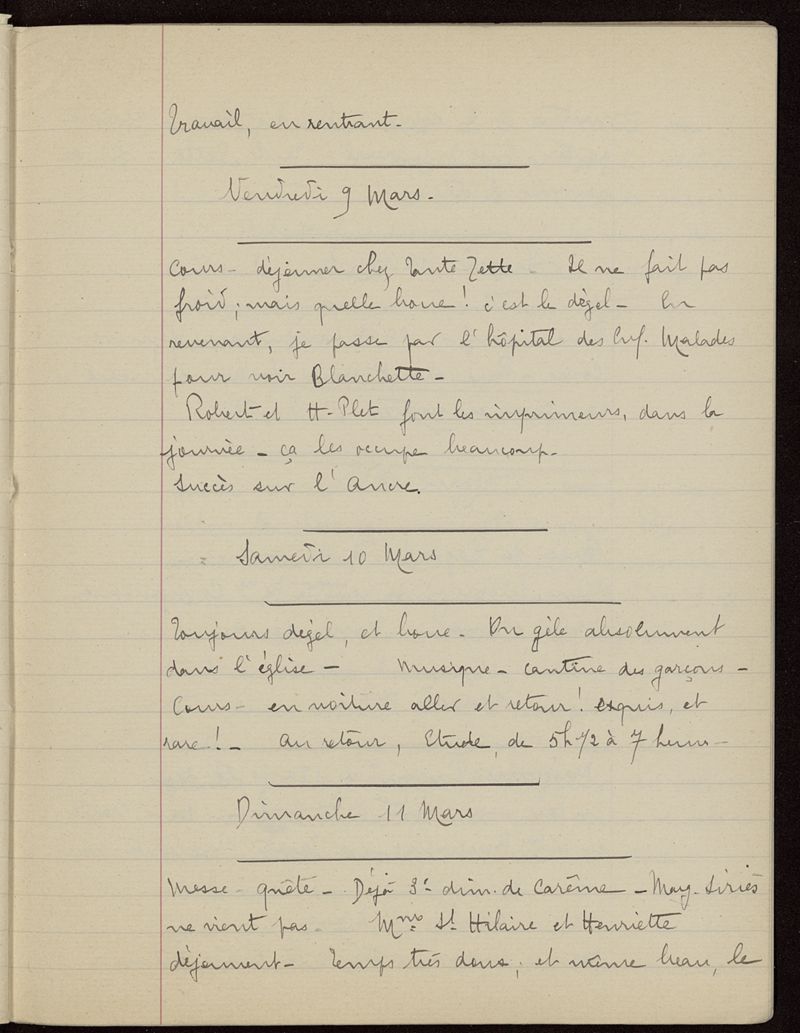 Travail, en rentrant.
Vendredi 9 Mars.
Cours - déjeuner chez Tante Zette - Il ne fait pas
froid ; mais quelle boue ! c'est le dégel - En
revenant, je passe par l'hôpital des Enf. Malades
pour voir Blanchette -
Robert et H. Plet font les imprimeurs, dans la
journée - ça les occupe beaucoup.
Succès sur l'Ancre.
Samedi 10 Mars
Toujours dégel, et boue - On gèle absolument
dans l'église - Musique - cantine des garçons -
Cours - en voiture aller et retour ! exquis, et
rare ! - Au retour, Etude, de 5h 1/2 à 7 heures -
Dimanche 11 Mars
Messe - quête - Déjà 3e dim. de Carême -
ne vient pas. Mmes St Hilaire et Henriette
déjeunent - Temps très doux, et même beau, le